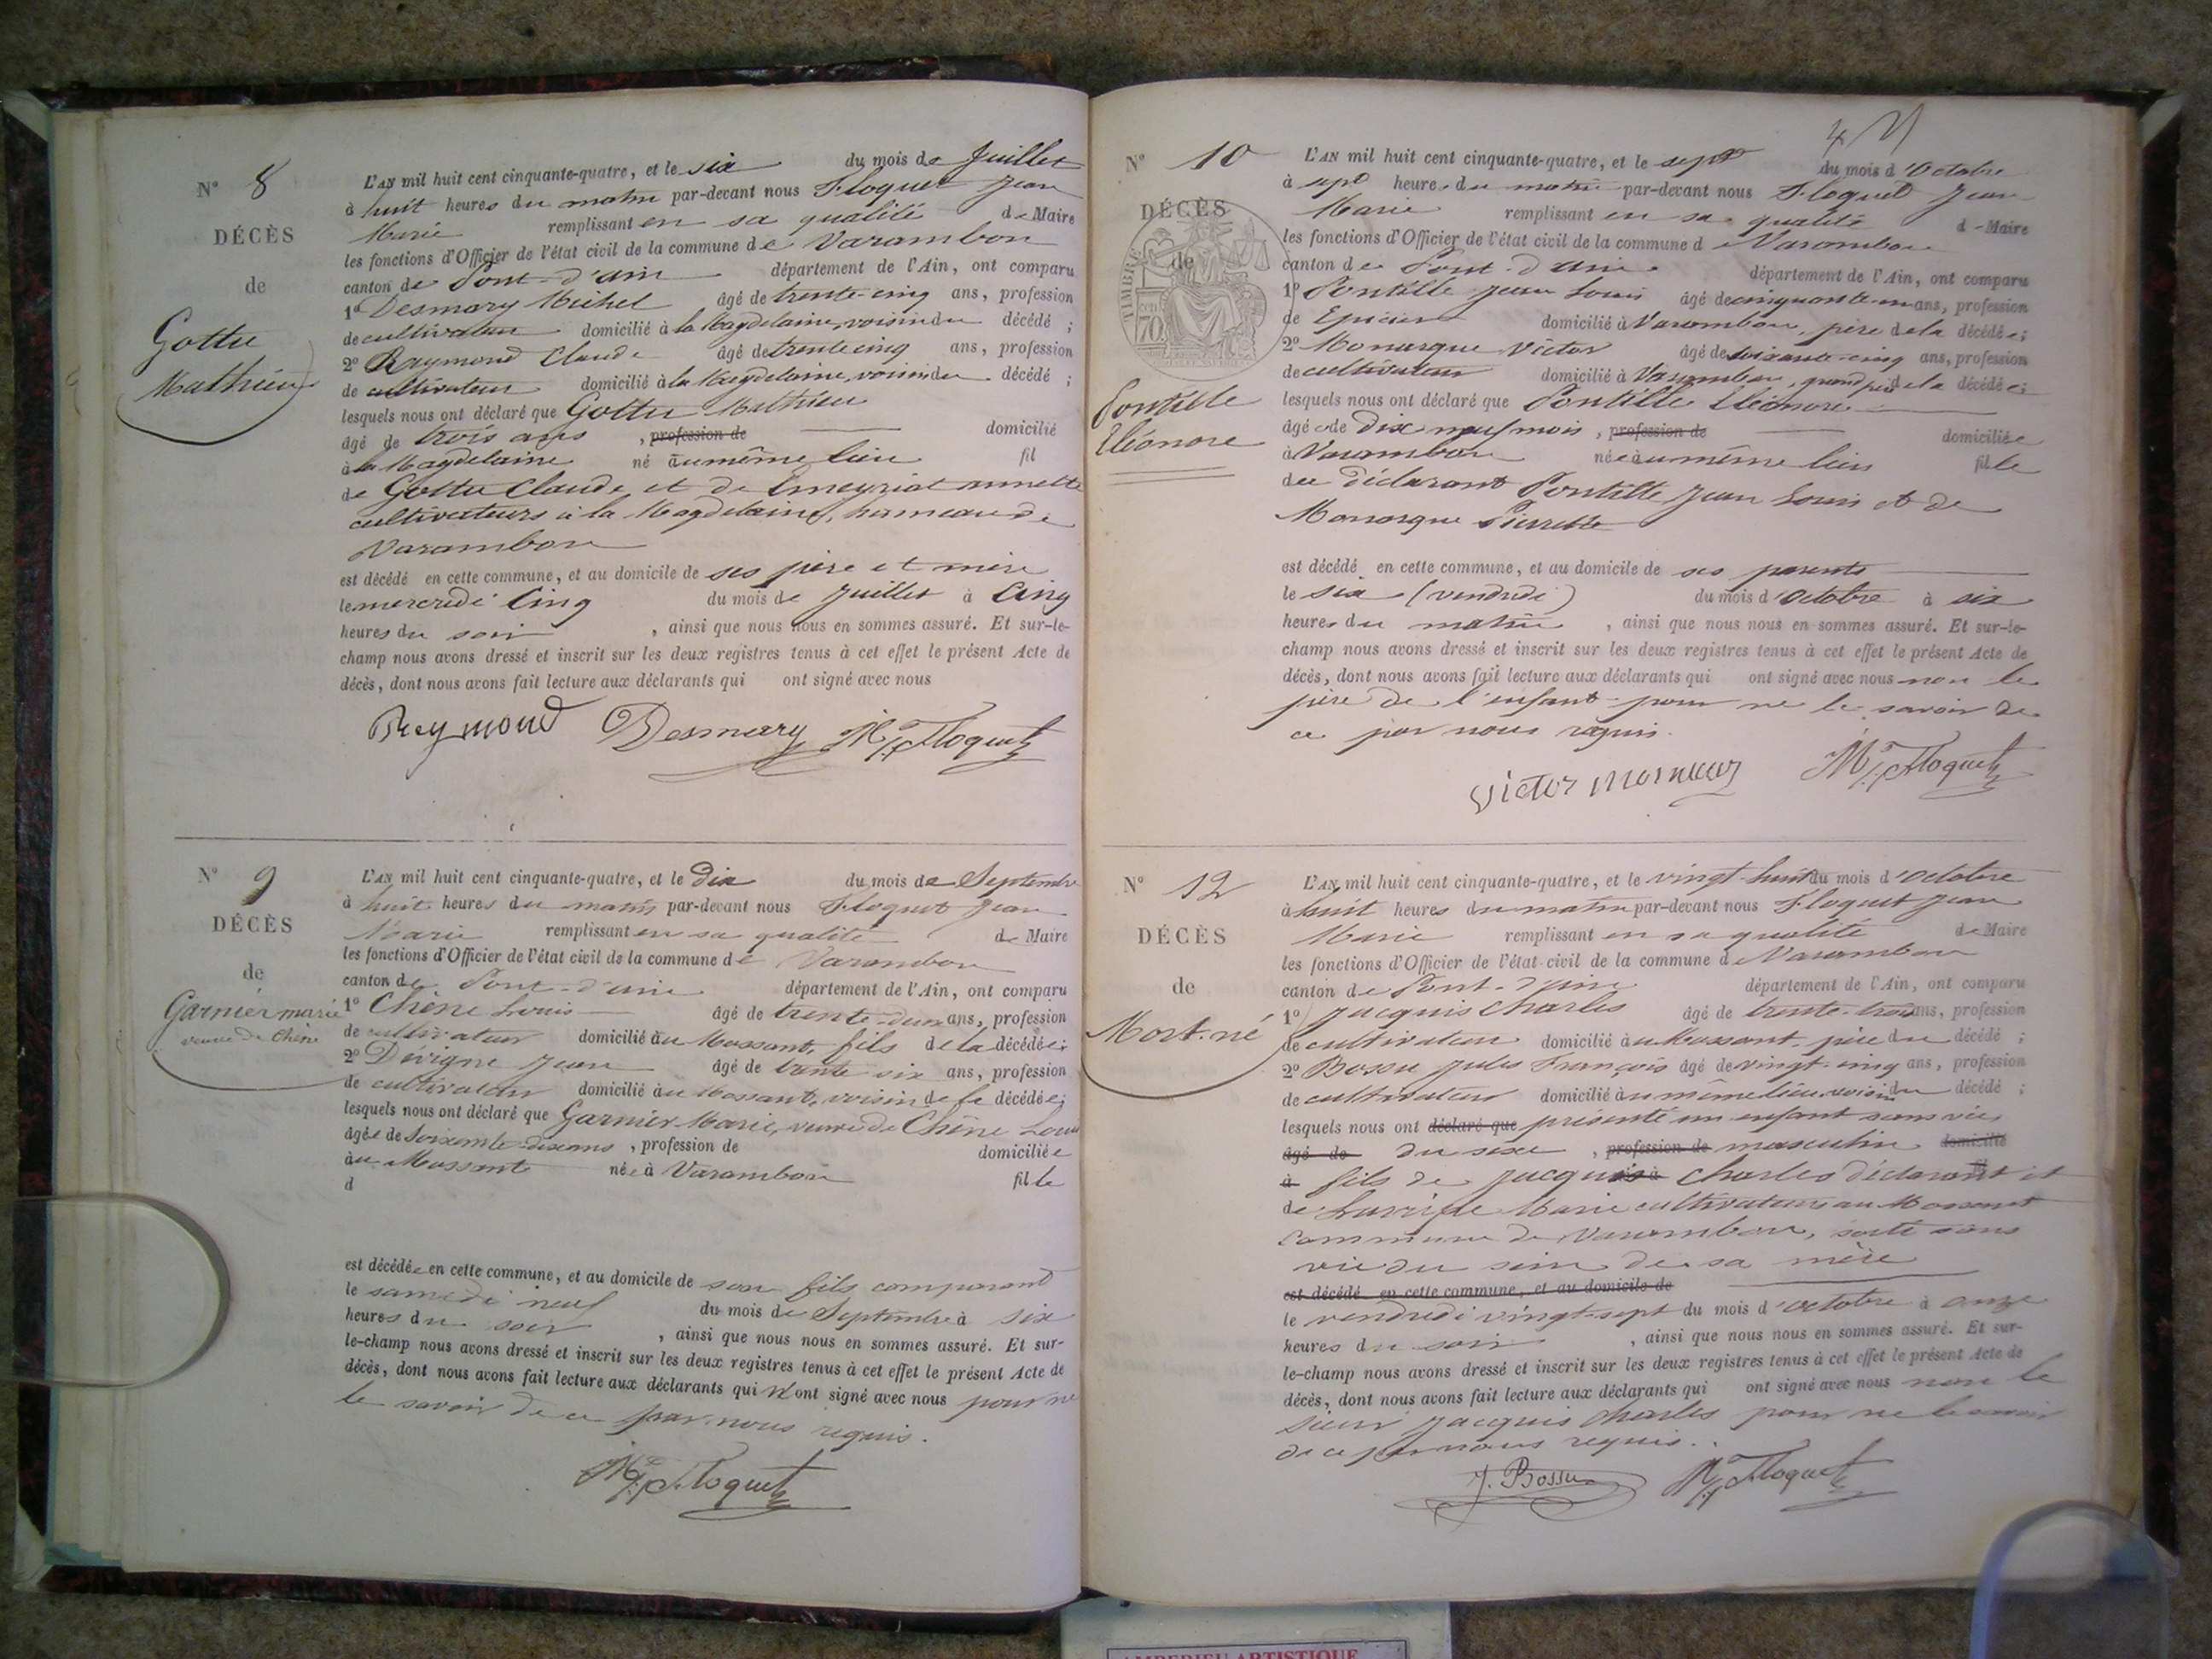 N° 8
DÉCÈS
de
Gottu
Mathieu
L'AN mil huit cent cinquante-quatre, et le six du mois de Juillet
à huit heures du matin par-devant nous Floquet Jean
Marie remplissant en sa qualité de Maire
les fonctions d'Officier de l'état civil de la commune de Varambon
canton de Pont-d'ain département de l'Ain, ont comparu
1° Desmary Michel âgé de trente-cinq ans, profession
de cultivateur domicilié à la Magdelaine, voisin du décédé ;
2° Raymond Claude âgé de trente cinq ans, profession
de cultivateur domicilié à la Magdelaine, voisin du décédé ;
lesquels nous ont déclaré que Gottu Mathieu
âgé de trois ans , profession de domicilié
à la Magdelaine né au même lieu fil
de Gottu Claude et de Emeyriat annette
cultivateurs à la Magdelaine, hameau de
Varambon
est décédé en cette commune, et au domicile de ses père et mère
le mercredi Cinq du mois de Juillet à Cinq
heures du soir , ainsi que nous nous en sommes assuré. Et sur-le-
champ nous avons dressé et inscrit sur les deux registres tenus à cet effet le présent Acte de
décès, dont nous avons fait lecture aux déclarants qui ont signé avec nous
Reymond Desmary Floquet
N° 9
DÉCÈS
de
Garnier marie
veuve de Chêne
L'AN mil huit cent cinquante-quatre, et le dix du mois de Septembre
à huit heures du matin par-devant nous Floquet Jean
Marie remplissant en sa qualité de Maire
les fonctions d'Officier de l'état civil de la commune de Varambon
canton de Pont-d'ain département de l'Ain, ont comparu
1° Chêne Louis âgé de trente-deux ans, profession
de cultivateur domicilié au Mossant, fils de la décédée ;
2° Devigne Jean âgé de trente six ans, profession
de cultivateur domicilié au Mossant, voisin de la décédée ;
lesquels nous ont déclaré que Garnier Marie, veuve de Chêne Louis
âgée de Soixante-dix ans , profession de domiciliée
au Mossant née à Varambon fille
d
est décédée en cette commune, et au domicile de son fils comparant
le samedi neuf du mois de Septembre à six
heures du soir , ainsi que nous nous en sommes assuré. Et sur-
le-champ nous avons dressé et inscrit sur les deux registres tenus à cet effet le présent Acte de
décès, dont nous avons fait lecture aux déclarants qui n'ont signé avec nous pour ne
le savoir de ce par nous requis.
Floquet
N° 10
DÉCÈS
de
TIMBRE
70
Pontille
Eléonore
L'AN mil huit cent cinquante-quatre, et le sept du mois d'Octobre
à sept heures du matin par-devant nous Floquet Jean
Marie remplissant en sa qualité de Maire
les fonctions d'Officier de l'état civil de la commune de Varambon
canton de Pont-d'ain département de l'Ain, ont comparu
1° Pontille Jean Louis âgé de cinquante-un ans, profession
de Epicier domicilié à Varambon, père de la décédée ;
2° Monarque Victor âgé de soixante-cinq ans, profession
de cultivateur domicilié à Varambon, grand père de la décédée ;
lesquels nous ont déclaré que Pontille Eléonore
âgée de Dix neuf mois , profession de domiciliée
à Varambon née au même lieu fille
du déclarant Pontille Jean Louis et de
Monarque Pierrette
est décédé en cette commune, et au domicile de ses parents
le six (vendredi) du mois d'Octobre à six
heures du matin , ainsi que nous nous en sommes assuré. Et sur-le-
champ nous avons dressé et inscrit sur les deux registres tenus à cet effet le présent Acte de
décès, dont nous avons fait lecture aux déclarants qui ont signé avec nous non le
père de l'enfant pour ne le savoir de
ce par nous requis.
Victor Floquet
N° 12
DÉCÈS
de
Mort-né
L'AN mil huit cent cinquante-quatre, et le vingt-huit du mois d'Octobre
à huit heures du matin par-devant nous Floquet Jean
Marie remplissant en sa qualité de Maire
les fonctions d'Officier de l'état civil de la commune de Varambon
canton de Pont-d'ain département de l'Ain, ont comparu
1° Jacquis Charles âgé de trente-trois ans, profession
de cultivateur domicilié au Mossant, père du décédé ;
2° Bossu Jules François âgé de vingt-cinq ans, profession
de cultivateur domicilié au même lieu, voisin du décédé ;
lesquels nous ont déclaré que présenté un enfant sans vie
âgé de du sexe , profession de masculin domicilié
à fils de Jacquis Charles déclarant et
de Marie cultivateurs au Mossant
commune de Varambon, sorti sans
vie du sein de sa mère
est décédé en cette commune, et au domicile de
le vendredi vingt-sept du mois d'Octobre à onze
heures du soir , ainsi que nous nous en sommes assuré. Et sur-
le-champ nous avons dressé et inscrit sur les deux registres tenus à cet effet le présent Acte de
décès, dont nous avons fait lecture aux déclarants qui ont signé avec nous non le
sieur Jacquis Charles pour ne le savoir
de ce par nous requis.
J. Bossu Floquet
AMBERIEU ARTISTIQUE